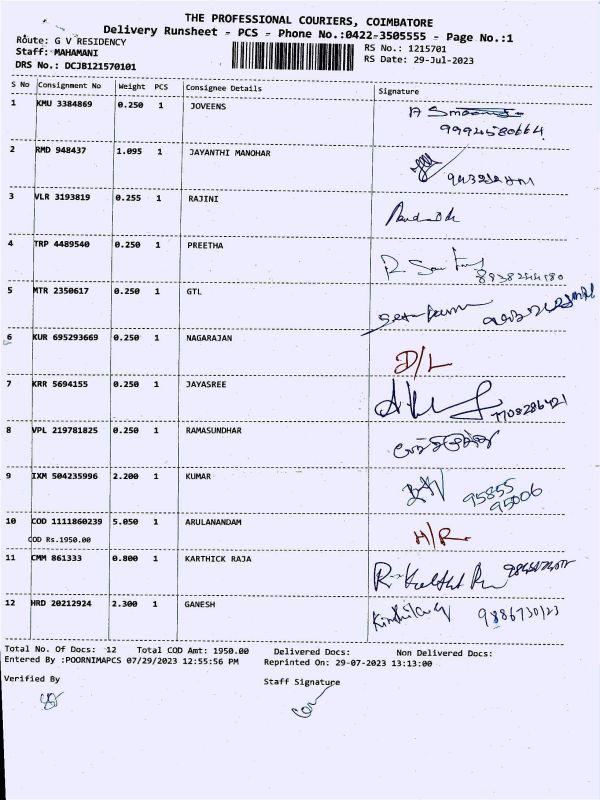 THE PROFESSIONAL COURIERS, COIMBATORE
Delivery Runsheet - PCS - Phone No.:0422-3505555 - Page No.:1
Route: G V RESIDENCY
RS No.: 1215701
Staff: MAHAMANI
RS Date: 29-Jul-2023
DRS No.: DCJB121570101
S No Consignment No Weight PCS Consignee Details Signature
1 KMU 3384869 0.250 1 JOVEENS
9994580664
2 RMD 948437 1.095 1 JAYANTHI MANOHAR
3 VLR 3193819 0.255 1 RAJINI
4 TRP 4489540 0.250 1 PREETHA
5 MTR 2350617 0.250 1 GTL
6 KUR 695293669 0.250 1 NAGARAJAN D/L
7 KRR 5694155 0.250 1 JAYASREE 7708286421
8 VPL 219781825 0.250 1 RAMASUNDHAR
9 IXM 504235996 2.200 1 KUMAR 95855
95006
10 COD 1111860239 5.050 1 ARULANANDAM H/R.
COD Rs.1950.00
11 CMM 861333 0.800 1 KARTHICK RAJA
12 HRD 20212924 2.300 1 GANESH 9886730123
Total No. Of Docs: 12 Total COD Amt: 1950.00 Delivered Docs: Non Delivered Docs:
Entered By :POORNIMAPCS 07/29/2023 12:55:56 PM Reprinted On: 29-07-2023 13:13:00
Verified By Staff Signature